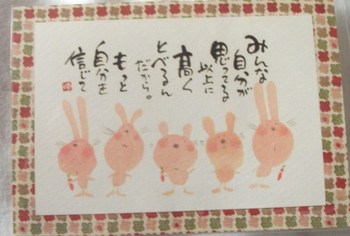 みんな
自分が
思ってる
以上に
高く
とべるん
だから。
もっと
自分を
信じて